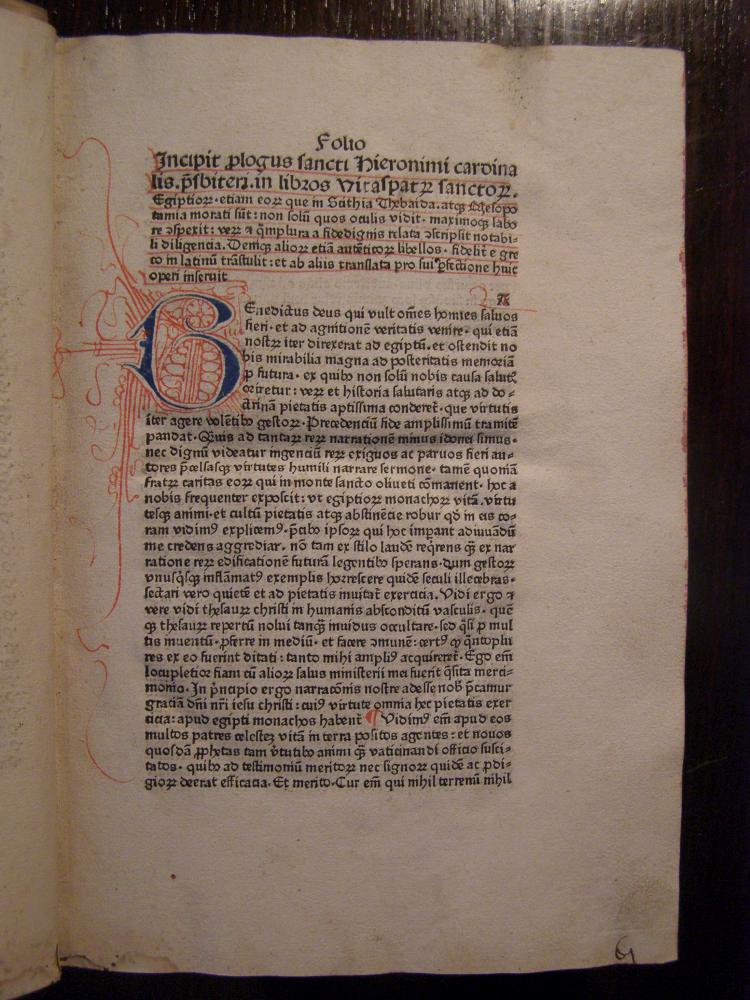 Folio
Incipit ꝓlogus sancti Hieronimi cardina
lis.p̃sbiteri.in libros Vitaspatꝝ sanctoꝝ.
Egiptioꝝ·etiam eoꝝ que in Scithia Thebaida.atqꝫ Mesopo
tamia morati sūt:non solū quos oculis vidit·maximoqꝫ labo
re ꝯspexit:veꝝ ⁊ q̃mplura a fidedignis relata ꝯscripsit notabi-
li diligencia.Deniqꝫ alioꝝ etiā autēticoꝝ libellos·fidelit̃ e gre
co in latinū trāstulit:et ab aliis translata pro sui ꝑfectione huic
operi inseruit
Benedictus deus qui vult om̃es homīes saluos
fieri·et ad agnitionē veritatis venire·qui etiā
nostꝝ iter direxerat ad egiptū.et ostendit no
bis mirabilia magna ad posteritatis memoriā
ꝓ futura·ex quibꝰ non solū nobis causa salutꝭ
oriretur:veꝝ et historia salutaris atqꝫ ad do-
ctrinā pietatis aptissima conderet̃·que virtutis
iter agere volētibꝰ gestoꝝ·Precedenciū fide amplissimū tramitē
pandat·Quis ad tantaꝝ reꝝ narrationē minus idonei simus·
nec dignū videatur ingenciū reꝝ exiguos ac paruos fieri au-
tores p̃celsasqꝫ virtutes humili narrare sermone·tamē quoniā
fratꝝ caritas eoꝝ qui in monte sancto oliueti cōmanent·hoc a
nobis frequenter exposcit:vt egiptioꝝ monachoꝝ vitā.virtu
tesqꝫ animi·et cultū pietatis atqꝫ abstinēcie robur qd̓ in eis co-
ram vidimꝰ explicemꝰ·p̃cibꝰ ipsoꝝ qui hoc imꝑant adiuuādū
me credens aggrediar.nō tam ex stilo laudē req̃rens q̃ꝫ ex nar
ratione reꝝ edificationē futurā legentibꝰ sperans·dum gestoꝝ
vnusq̃sqꝫ inflāmatꝰ exemplis horrescere quidē seculi illecebras·
sectari vero quietē et ad pietatis inuitat̃ exercicia.Vidi ergo ⁊
vere vidi thesauꝝ christi in humanis absconditū vasculis·quē
qꝫ thesauꝝ repertū nolui tanqꝫ inuidus occultare·sed q̃si ꝓ mul
tis inuentū·ꝓferre in mediū·et facere ꝯmunē:certꝰ ꝙ q̃ntoplu
res ex eo fuerint ditati:tanto mihi ampliꝰ acquireret̃·Ego em̄
locupletior fiam cū alioꝝ salus ministerii mei fuerit q̃sita merci-
monio·In p̃ncipio ergo narracōnis nostre adesse nob̓ p̃camur
graciā dn̄i nr̄i iesu christi:cuiꝰ virtute omnia hec pietatis exer
cicia:apud egipti monachos habent̃ ¶ Vidimꝰ em̄ apud eos
multos patres celestez vitā in terra positos agentes:et nouos
quosdā ꝓphetas tam v̓tutibꝰ animi q̃ꝫ vaticinandi officio susci-
tatos·quibꝰ ad testimoniū meritoꝝ nec signoꝝ quidē ac ꝓdi-
gioꝝ deerat efficacia·Et merito·Cur em̄ qui nihil terrenū nihil